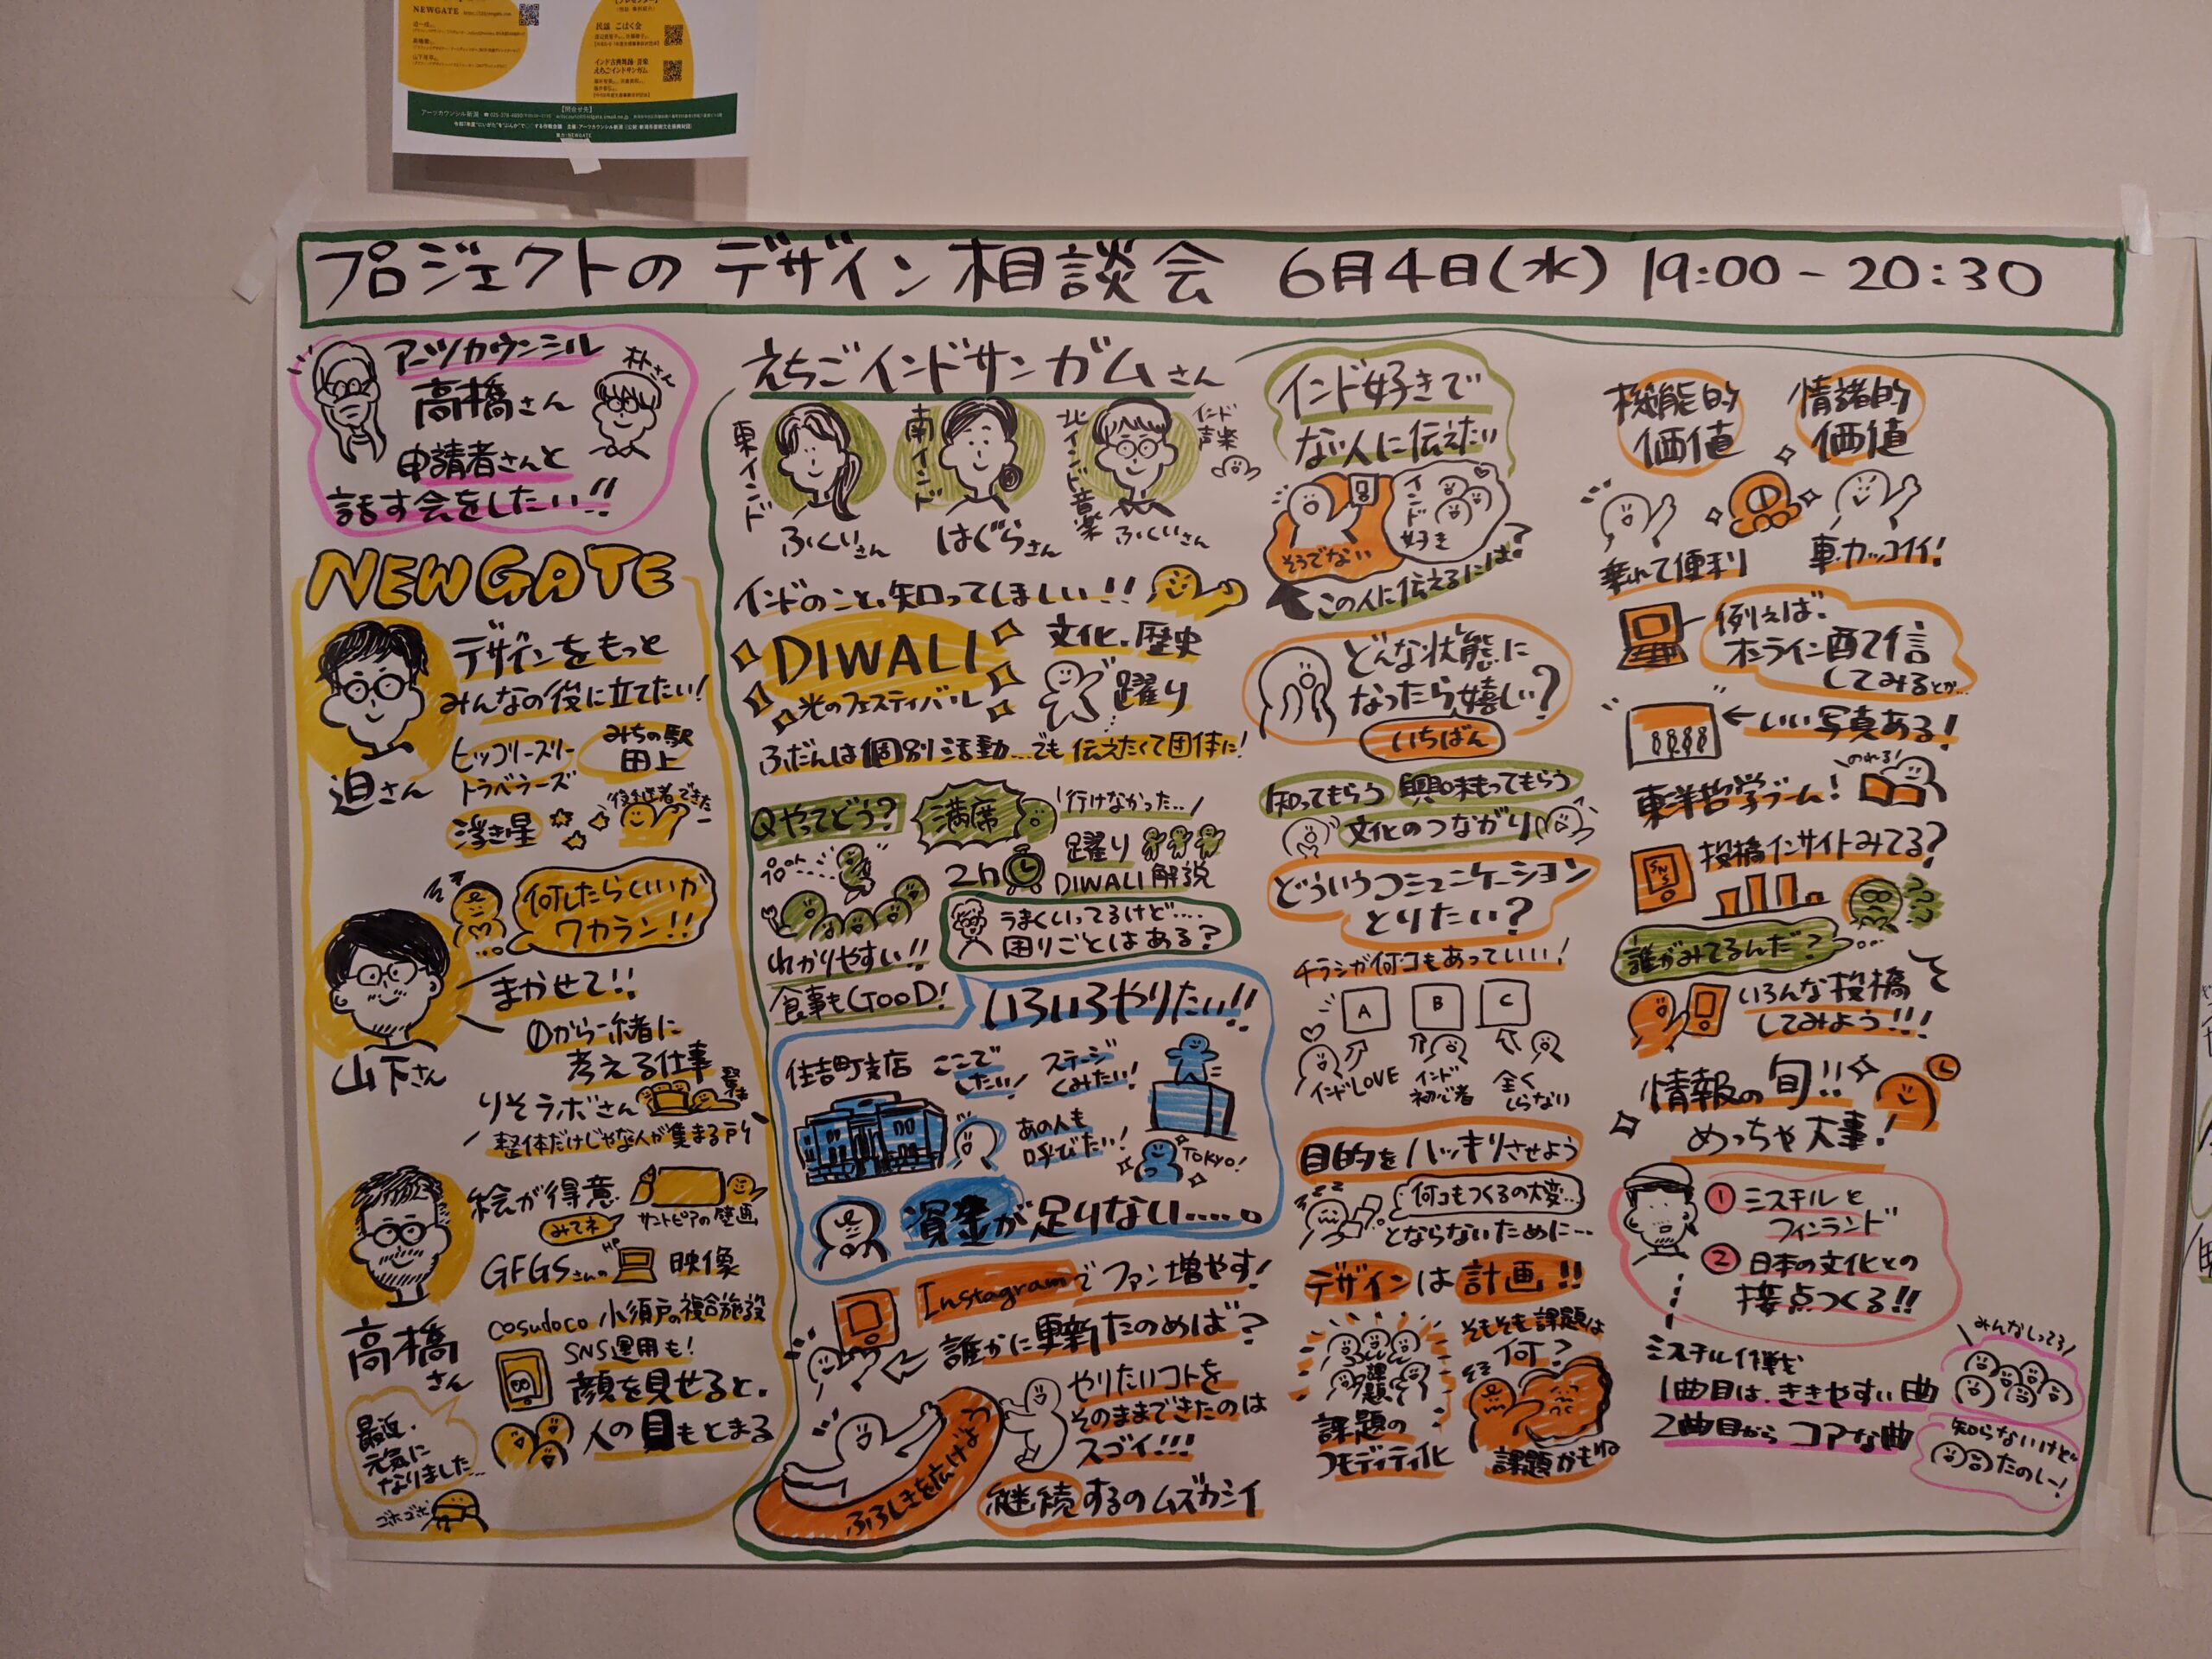 NEWGATE
民謡 こばく会
インド古典舞踊・音楽
えちごインドサンガム
【問合せ先】
アーツカウンシル新潟
プロジェクトの デザイン相談会 6月4日(水) 19:00-20:30
アーツカウンシル
高橋さん
朴さん
申請者さんと
話す会をしたい!!
NEWGATE
デザインをもっと
みんなの役に立てたい!
迫さん
ヒッコリースリー
トラベラーズ
みちの駅
田上
浮き星
後継者できた
何したらいいか
ワカラン!!
まかせて!!
山下さん
0から一緒に
考える仕事
りそラボさん
整体だけじゃな人が集まる所
絵が得意
みてネ
サントピアの壁画
GFGSさんの
HP
映像
高橋さん
cosudoco 小須戸の複合施設
SNS運用も!
顔を見せると、
人の目もとまる
最近、
元気に
なりました…
ゴホゴホ
えちごインドサンガムさん
東インド
ふくいさん
南インド
はぐらさん
北インド音楽
ふくいさん
インド
声楽
インドのこと、知ってほしい!!
DIWALI
光のフェスティバル
文化、歴史
踊り
ふだんは個別活動…でも伝えたくて団体に!
Qやってどう?
満席
行けなかった..
2h
踊り
DIWALI解説
わかりやすい!!
食事もGOOD!
うまくいってるけど....
困りごとはある?
いろいろやりたい!!
住吉町支店
ここで
したい!
ステージ
くみたい!
あの人も
呼びたい!
TOKYO!
資金が足りない.....。
Instagramでファン増やす!
誰かに更新たのめば?
やりたいコトを
そのままできたのは
スゴイ!!!
ふろしきを広げよう
継続するのムズカシイ
インド好きで
ない人に伝えたい
そうでない
インド
好き
この人に伝えるには?
どんな状態に
なったら嬉しい?
いちばん
知ってもらう 興味もってもらう
文化のつながり
どういうコミュニケーション
とりたい?
チラシが何コもあっていい!
A
B
C
インドLOVE
インド
初心者
全く
しらない
目的をハッキリさせよう
何コもつくるの大変…
とならないために…
デザインは計画!!
そもそも課題は
何?
課題
課題の
コモディティ化
課題かもね
機能的
価値
情緒的
価値
乗れて便利
車、カッコイイ!
例えば、
オンライン配信
してみるとか…
←いい写真ある!
東洋哲学ブーム!
のれる!
SNS
投稿インサイトみてる?
誰がみてるんだ?
いろんな投稿を
してみよう!!!
情報の旬!!
めっちゃ大事!
① ミスチルと
フィンランド
② 日本の文化との
接点つくる!!
ミスチル作戦
1曲目は、ききやすい曲
2曲目から コアな曲
みんなしってる
知らないけど
たのしー!